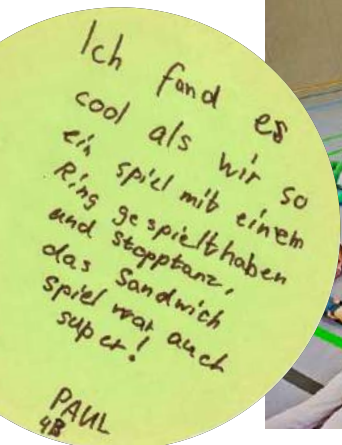 Ich fand es
cool als wir so
ein spiel mit einem
Ring gespielt haben
und stopptanz,
das Sandwich
spiel war auch
super!
PAUL
4B